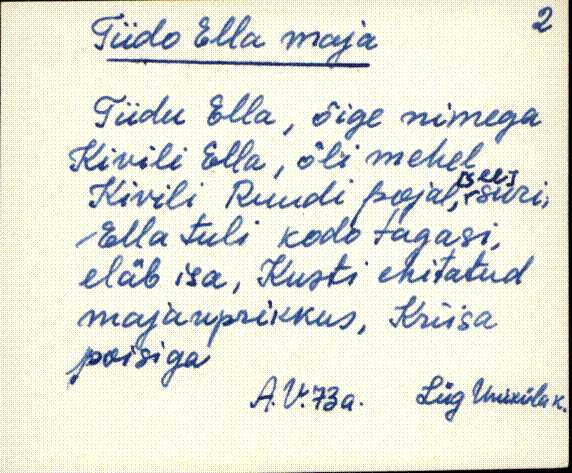 2
Tiido Ella maja
Tiidu Ella, õige nimega
Kivili Ella, õli mehel
Kivili Ruudi pojal, [see] suri,
Ella tuli kodo tagasi,
eläb isa, Kusti ehitatud
majauprikkus, Kriisa
poisiga
A.V.73a. Lüg Unikülak.